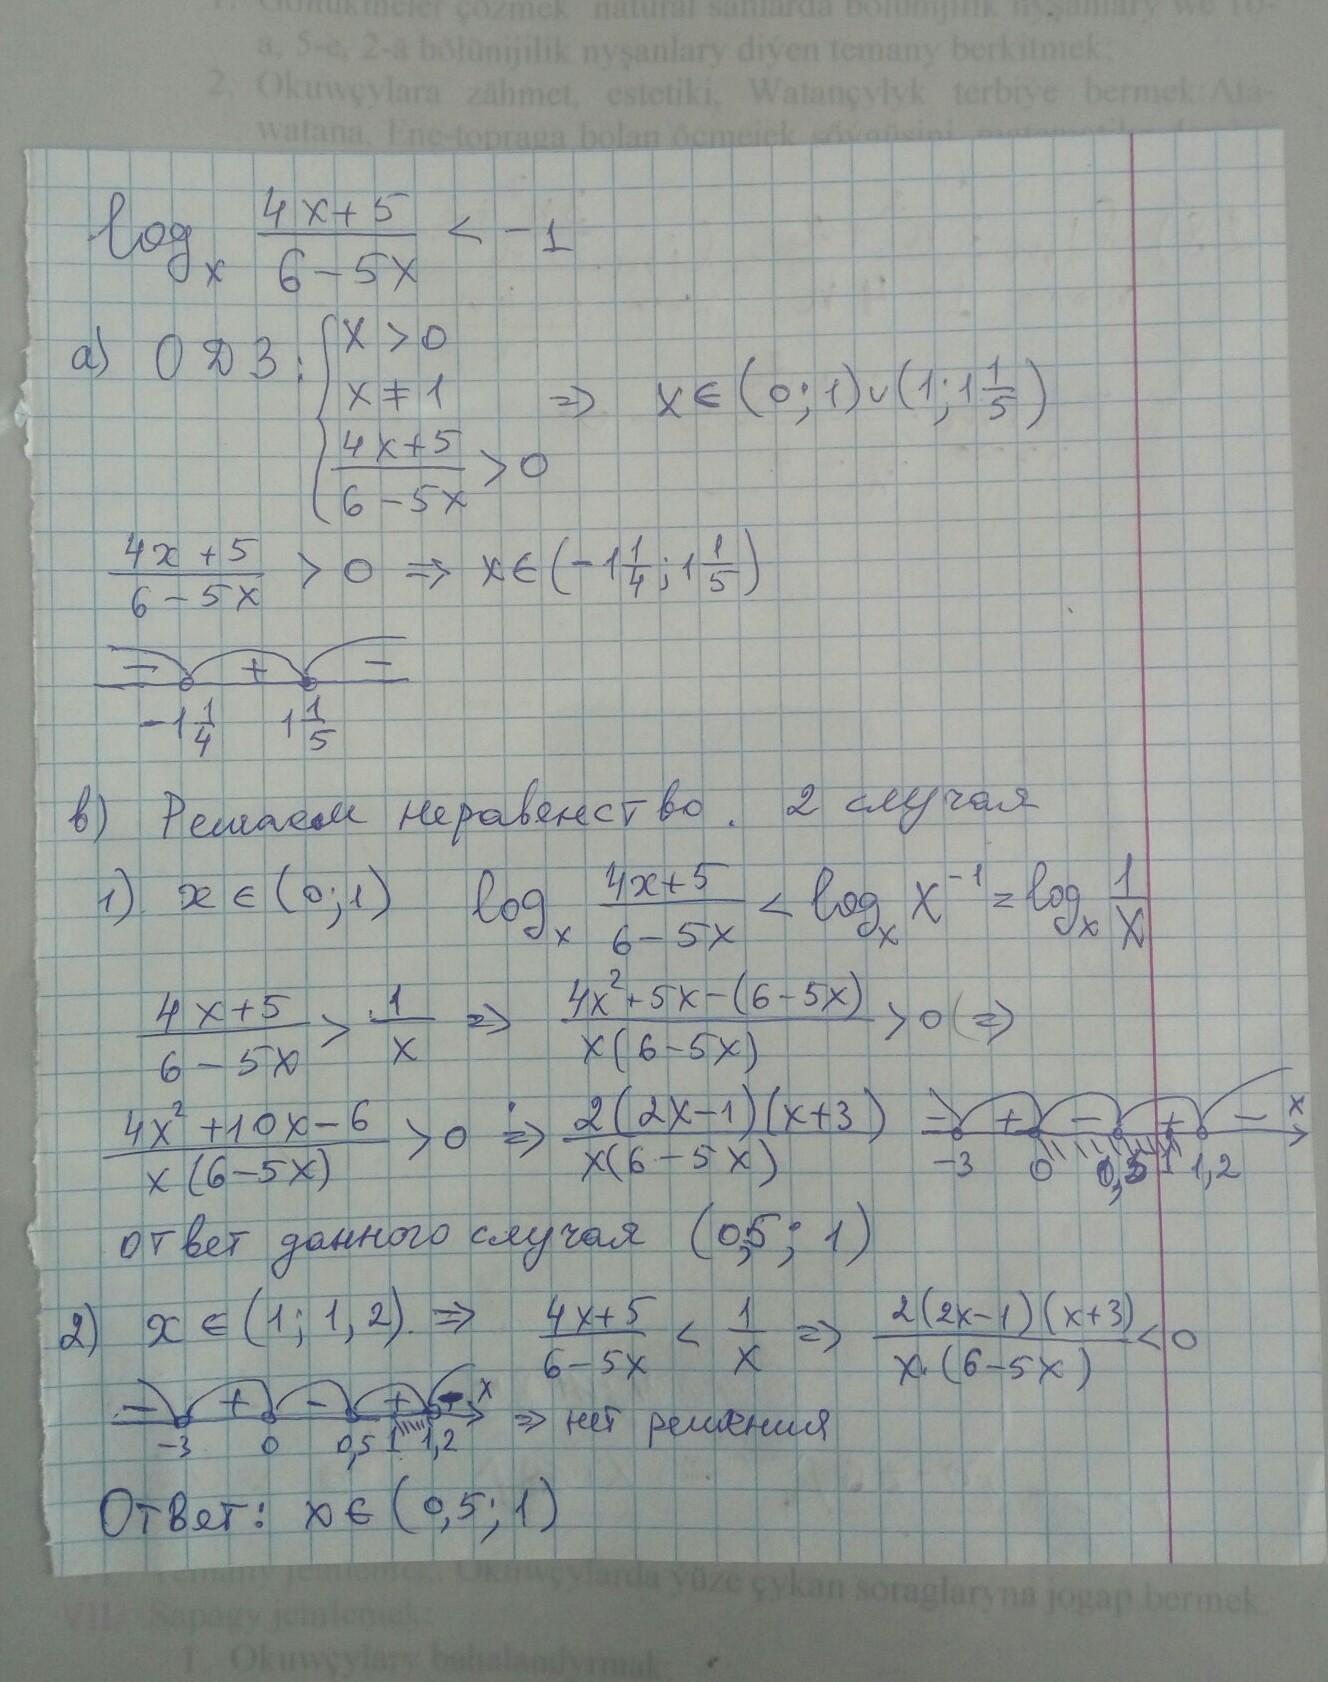 1. Gönükmeler çözmek natural sanlarda bölünijilik nyşanlary we 10-
a, 5-e, 2-ä bölünijilik nyşanlary diýen temany berkitmek;
2. Okuwçylara zähmet, estetiki, Watançylyk terbiýe bermek. Ata-
watana, Ene-topraga bolan
log_x (4x+5)/(6-5x) < -1
а) ОДЗ: { x > 0
x ≠ 1 => x ∈ (0; 1) ∪ (1; 1 1/5)
(4x+5)/(6-5x) > 0
(4x+5)/(6-5x) > 0 => x ∈ (-1 1/4; 1 1/5)
- + -
-1 1/4 1 1/5
в) Решаем неравенство. 2 случая
1) x ∈ (0; 1) log_x (4x+5)/(6-5x) < log_x x^-1 = log_x 1/x
(4x+5)/(6-5x) > 1/x => (4x²+5x-(6-5x))/(x(6-5x)) > 0 (=>
(4x²+10x-6)/(x(6-5x)) > 0 => (2(2x-1)(x+3))/(x(6-5x)) - + - + - x
-3 0 0,5 1 1,2
ответ данного случая (0,5; 1)
2) x ∈ (1; 1,2). => (4x+5)/(6-5x) < 1/x => (2(2x-1)(x+3))/(x·(6-5x)) < 0
- + - + - x
-3 0 0,5 1 1,2 => нет решения
Ответ: x ∈ (0,5; 1)
Temany jemlemek. Okuwçylarda ýüze çykan soraglaryna jogap bermek
VII. Sapagy jemlemek:
1. Okuwçylary bahalandyrmak